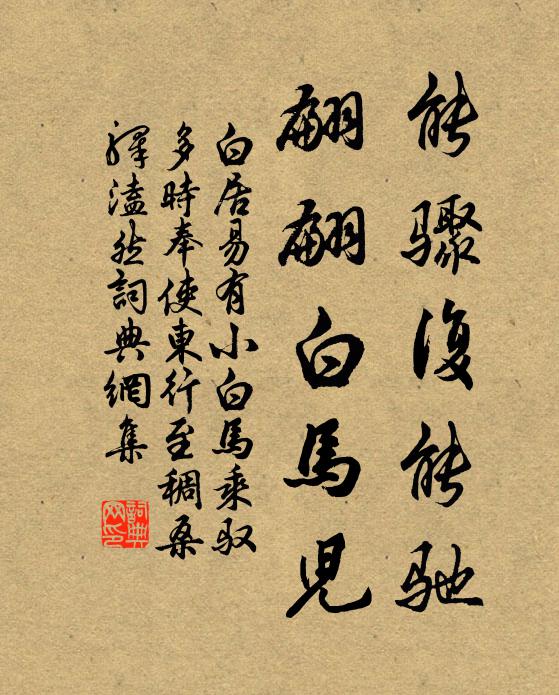 能驟復能馳
翩翩白馬兒
白居易有小白馬乘馭
多時奉使東行至稠桑
驛溘然詞典網集
詞典
网印